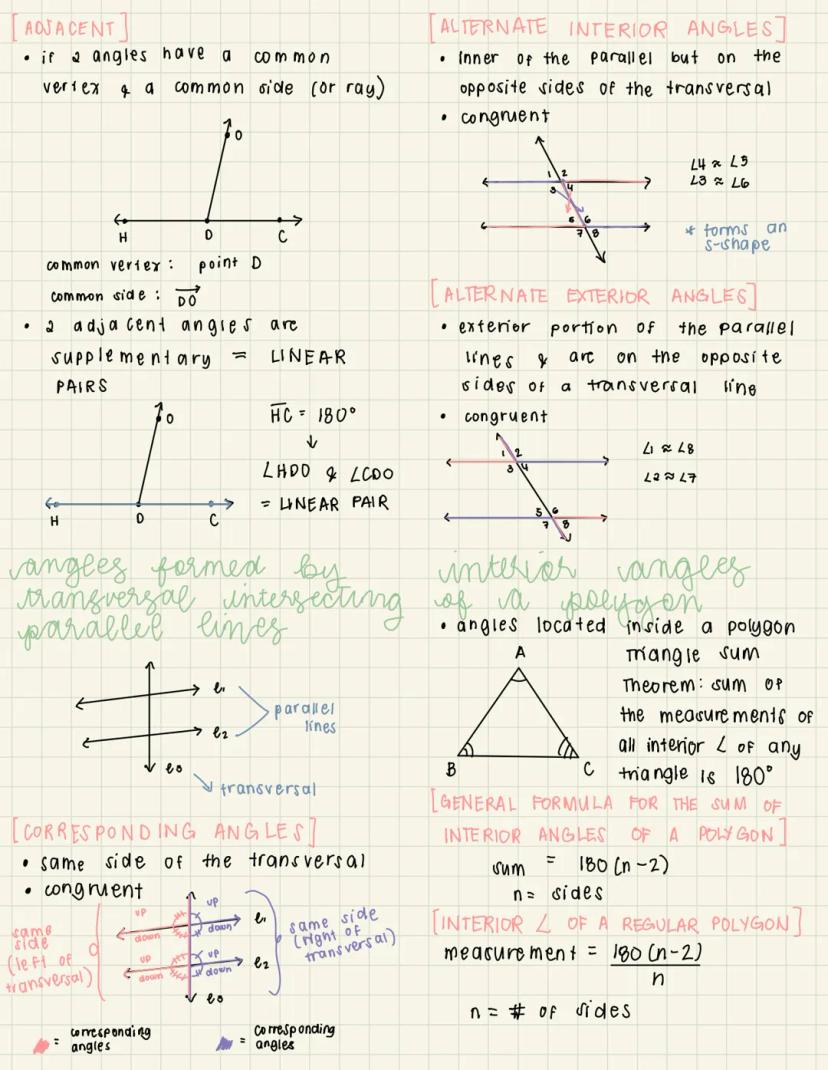 [ADJACENT]
• if 2 angles have a common
vertex & a common side (or ray)
O
H D C
common vertex: point D
common side: DO
• 2 adjacent angles are
supplementary = LINEAR
PAIRS
O
H D C
HC = 180°
↓
∠HDO & ∠CDO
= LINEAR PAIR
angles formed by
transversal intersecting
parallel lines
ℓ1
ℓ2
parallel
lines
ℓ3
transversal
[CORRESPONDING ANGLES]
• same side of the transversal
• congruent
same
side
(left of
transversal)
up up
down down
ℓ1
up up
down down
ℓ2
ℓ3
same side
(right of
transversal)
= corresponding
angles
= corresponding
angles
[ALTERNATE INTERIOR ANGLES]
• inner of the parallel but on the
opposite sides of the transversal
• congruent
1 2
3 4
5 6
7 8
∠4 ≈ ∠5
∠3 ≈ ∠6
* forms an
s-shape
[ALTERNATE EXTERIOR ANGLES]
• exterior portion of the parallel
lines & are on the opposite
sides of a transversal line
• congruent
1 2
3 4
5 6
7 8
∠1 ≈ ∠8
∠2 ≈ ∠7
interior angles
of a polygon
• angles located inside a polygon
A
B C
Triangle sum
Theorem: sum of
the measurements of
all interior ∠ of any
triangle is 180°
[GENERAL FORMULA FOR THE SUM OF
INTERIOR ANGLES OF A POLYGON]
sum = 180(n-2)
n = sides
[INTERIOR ∠ OF A REGULAR POLYGON]
measurement = 180(n-2)
n
n = # of sides